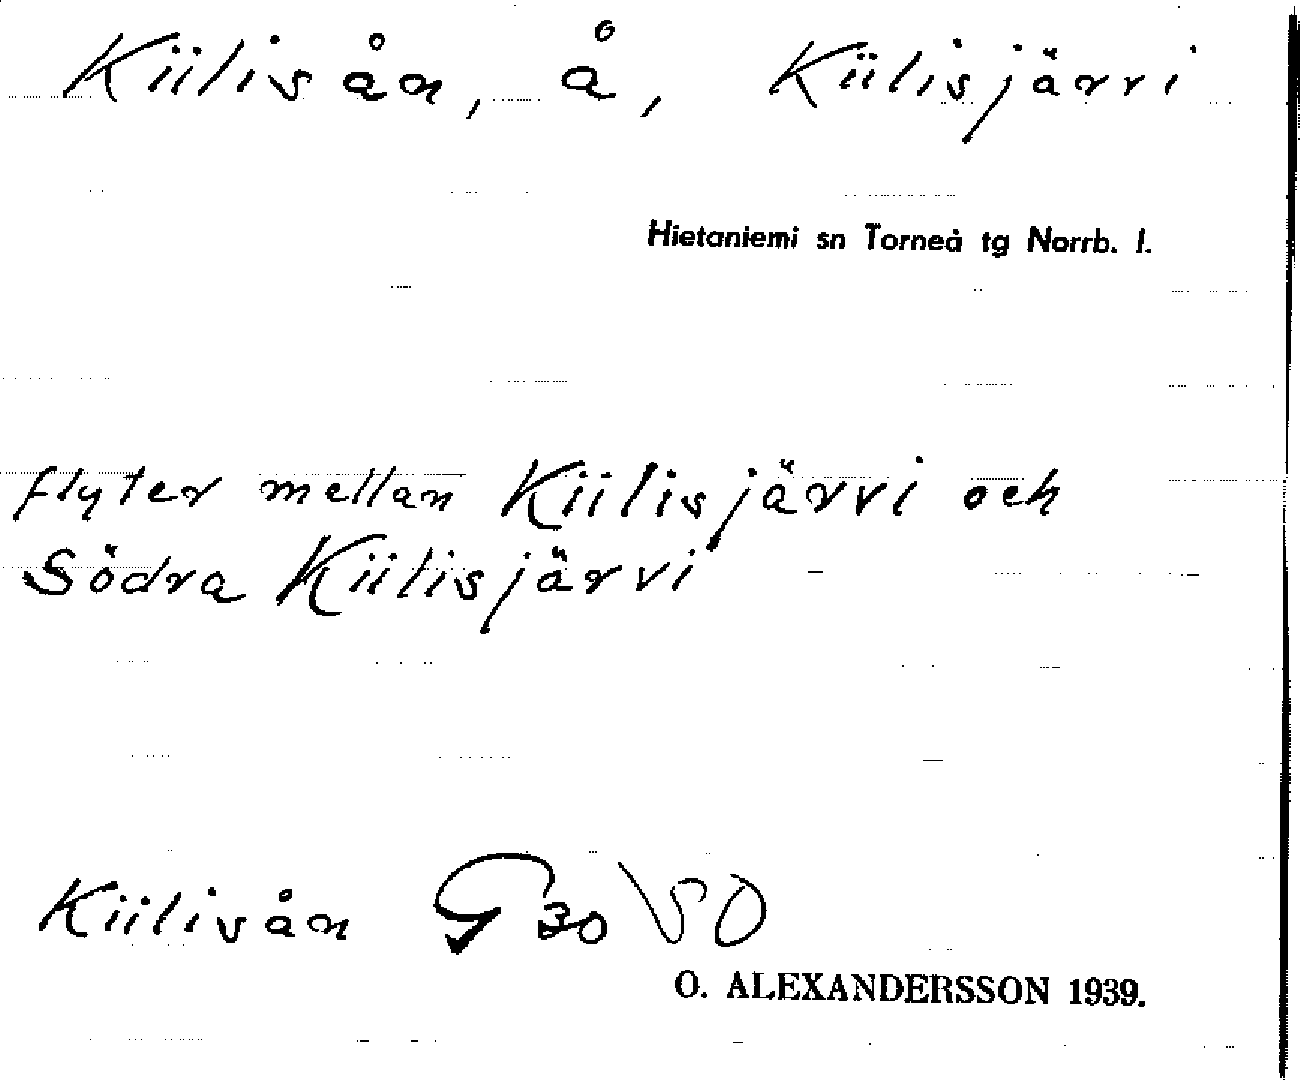 Kiilisån, å, Kiilisjärvi
Hietaniemi sn Torneå tg Norrb. l.
flyter mellan Kiilisjärvi och
Södra Kiilisjärvi
Kiilisån G 30 VSO
O. ALEXANDERSSON 1939.